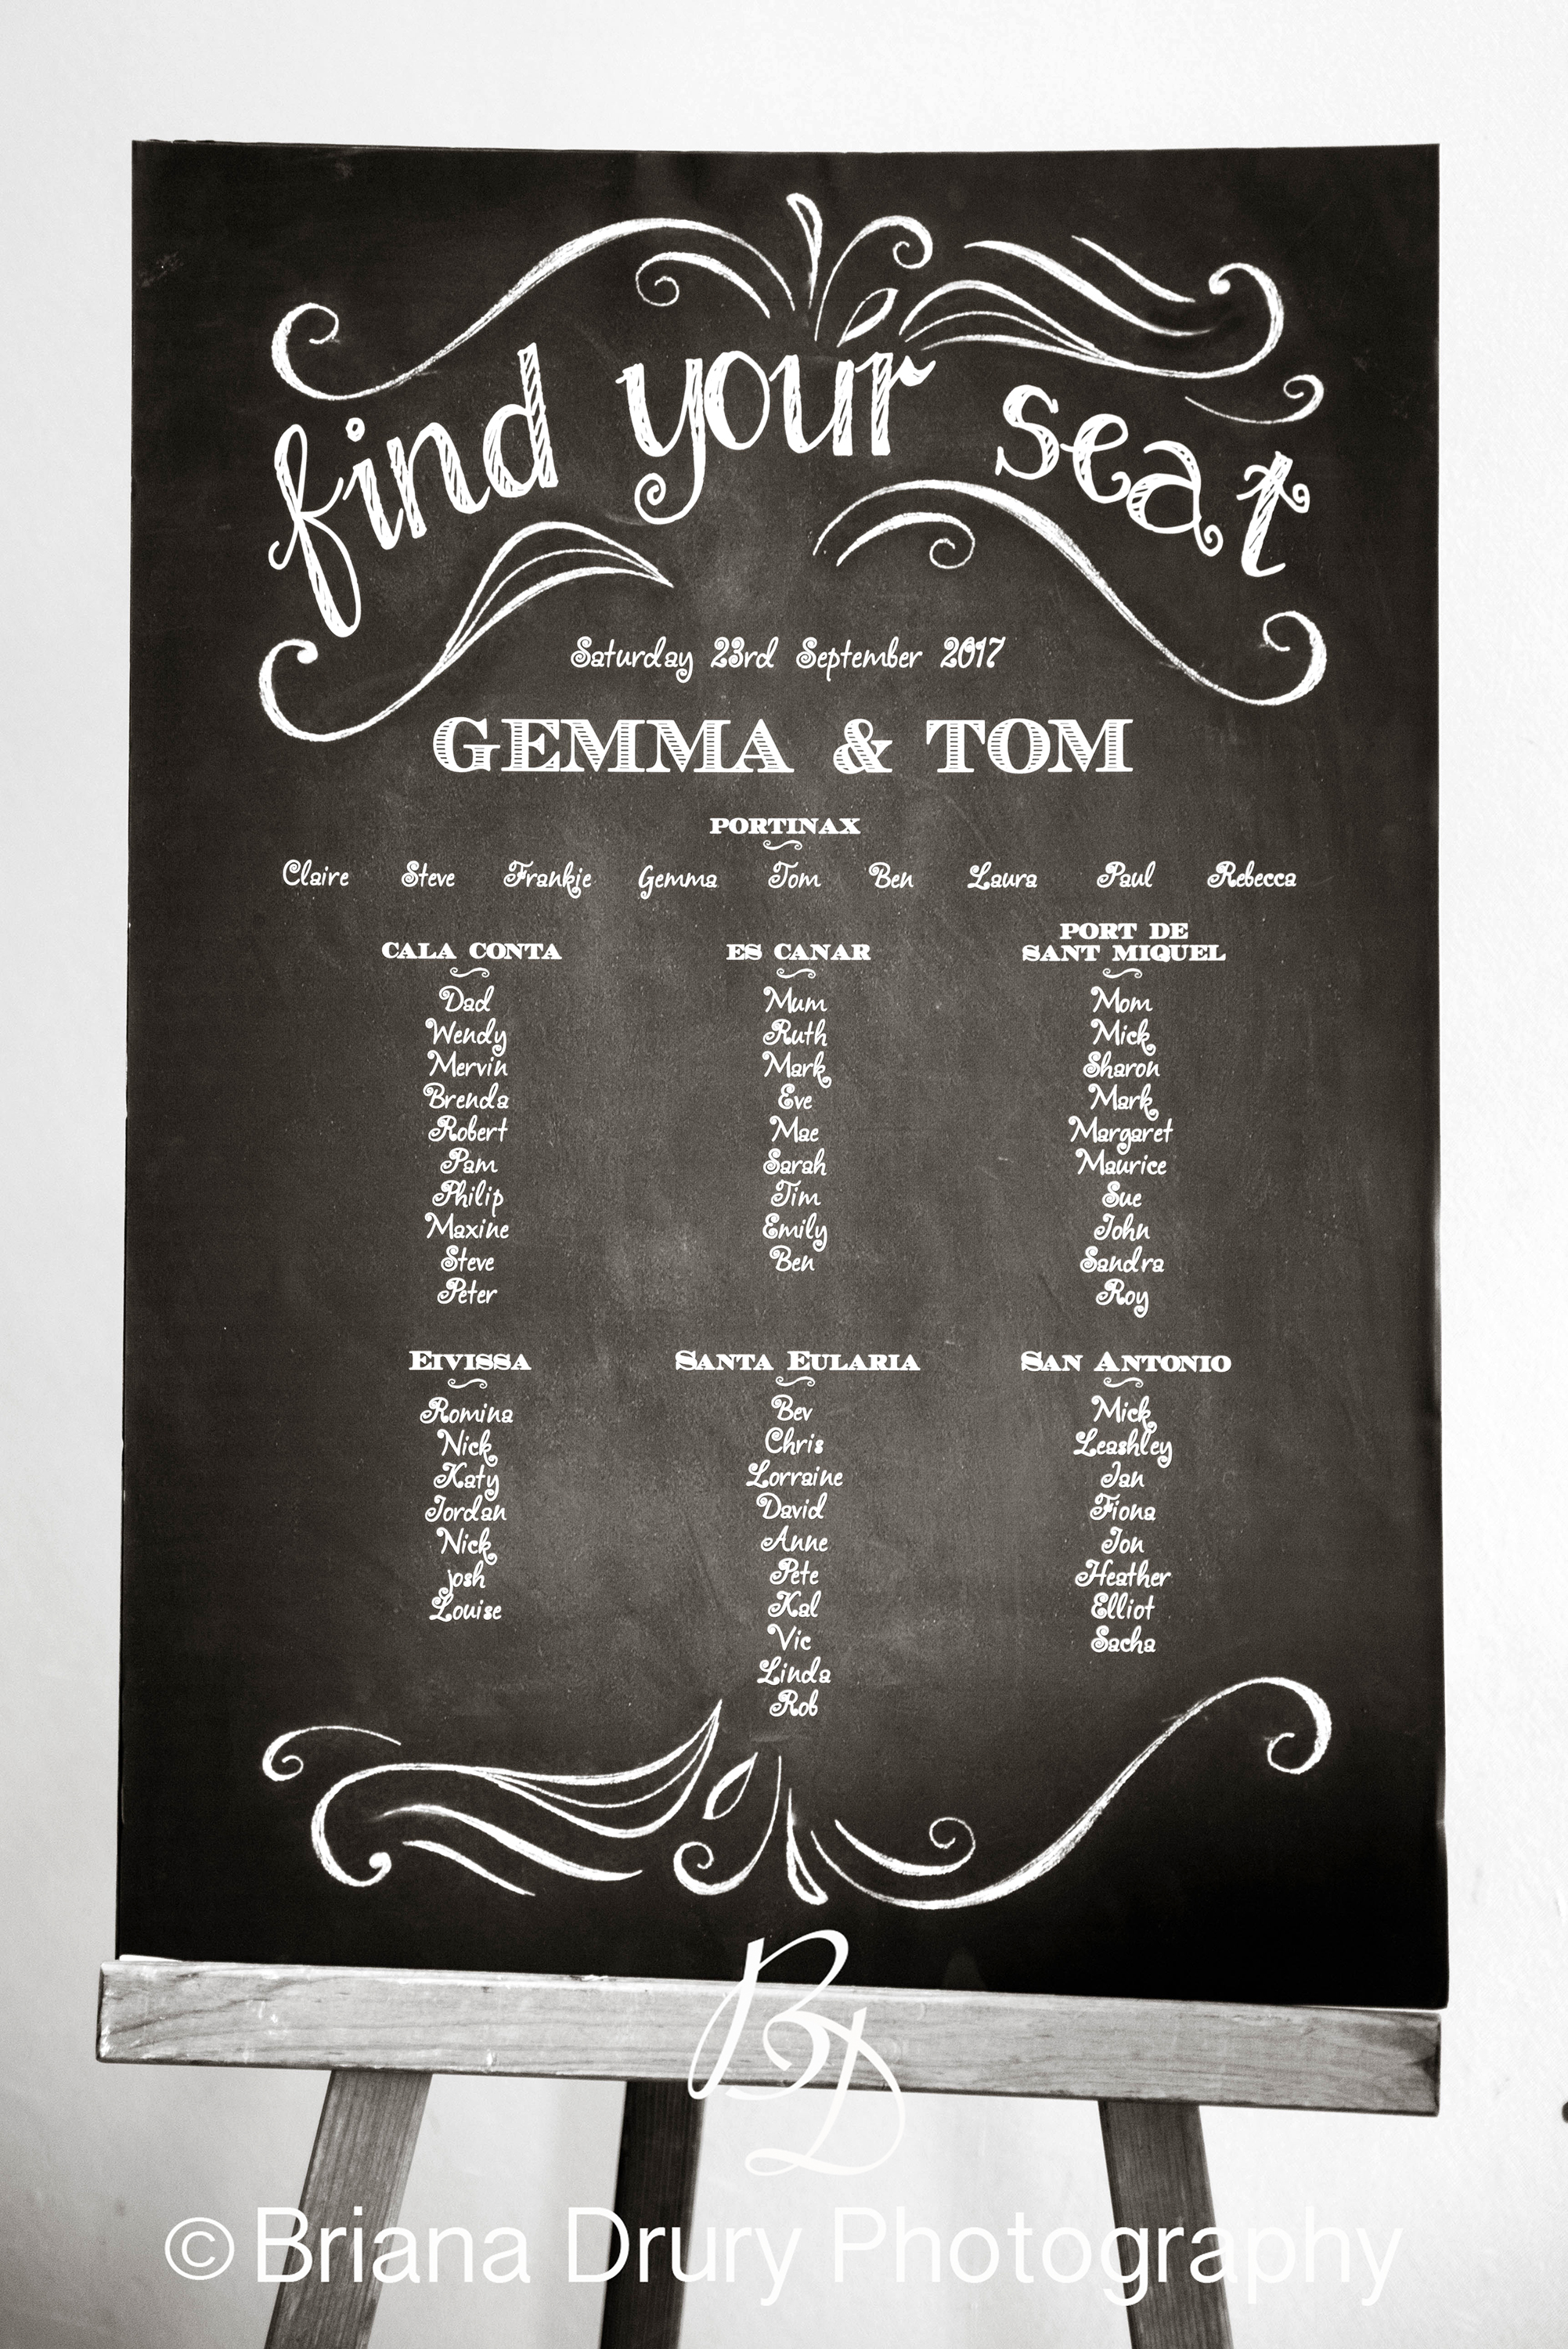 find your seat
Saturday 23rd September 2017
GEMMA & TOM
PORTINAX
Claire Steve Frankie Gemma Tom Ben Laura Paul Rebecca
CALA CONTA
Dad
Wendy
Mervin
Brenda
Robert
Pam
Philip
Maxine
Steve
Peter
ES CANAR
Mum
Ruth
Mark
Eve
Mae
Sarah
Tim
Emily
Ben
PORT DE
SANT MIQUEL
Mom
Mick
Sharon
Mark
Margaret
Maurice
Sue
John
Sandra
Roy
EIVISSA
Romina
Nick
Katy
Jordan
Nick
josh
Louise
SANTA EULARIA
Bev
Chris
Lorraine
David
Anne
Pete
Kal
Vic
Linda
Rob
SAN ANTONIO
Mick
Leashley
Ian
Fiona
Jon
Heather
Elliot
Sacha
BD
© Briana Drury Photography